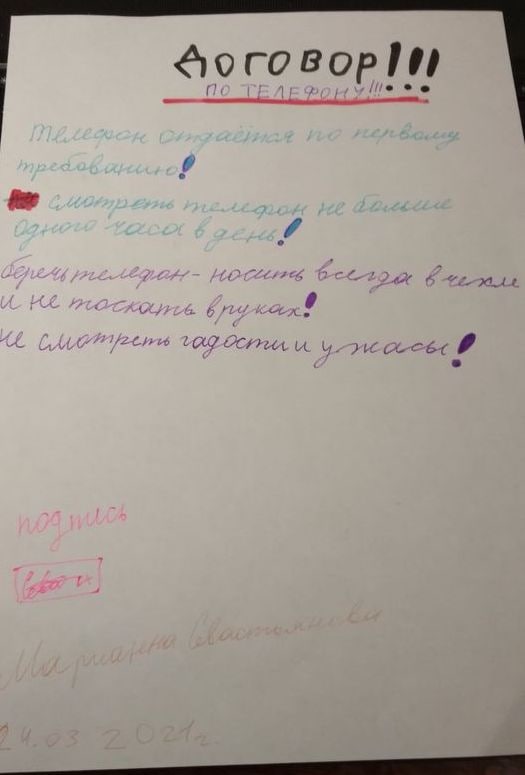 Договор!!!
ПО ТЕЛЕФОНУ!!!
Телефон отдаётся по первому
требованию!
смотреть телефон не больше
одного часа в день!
беречь телефон - носить всегда в чехле
и не тоскать в руках!
не смотреть гадости и ужасы!
подпись
Марианна Севастьянова
24.03 2021г.